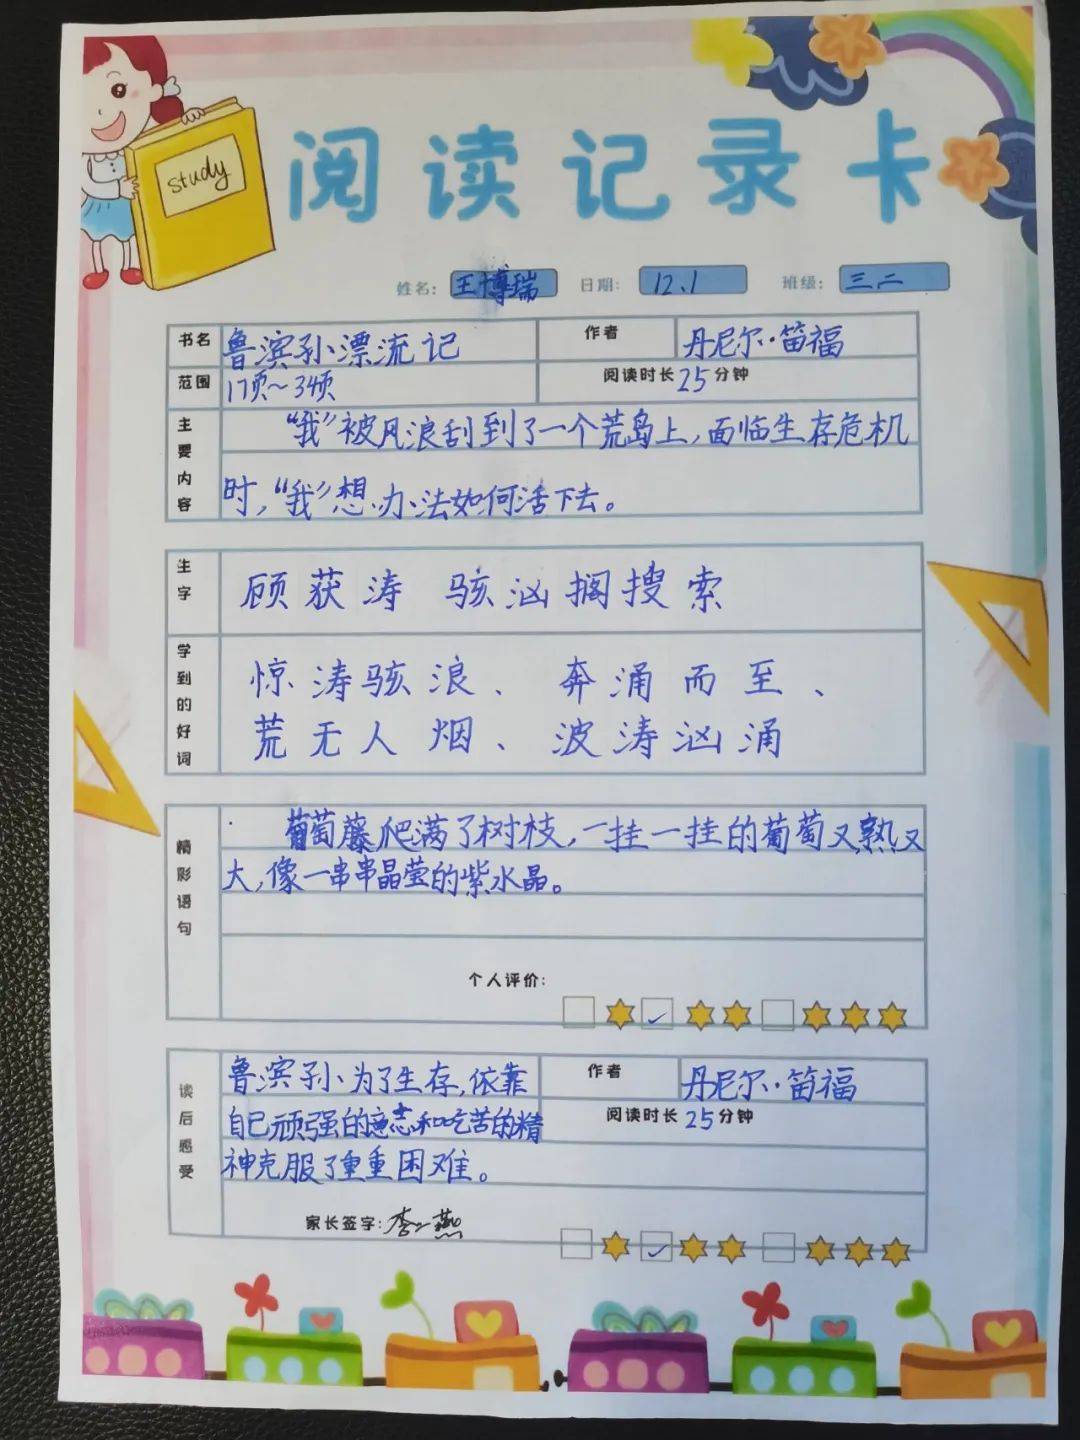 study
阅读记录卡
姓名: 王博瑞 日期: 12.1 班级: 三二
书名 鲁滨孙漂流记 作者 丹尼尔·笛福
范围 17页~34页 阅读时长 25 分钟
主要内容
“我”被风浪刮到了一个荒岛上,面临生存危机
时,“我”想办法如何活下去。
生字
顾获涛 骇汹搁搜索
学到的好词
惊涛骇浪、奔涌而至、
荒无人烟、波涛汹涌
精彩语句
葡萄藤爬满了树枝,一挂一挂的葡萄又熟又
大,像一串串晶莹的紫水晶。
个人评价:
读后感受
鲁滨孙为了生存,依靠 作者 丹尼尔·笛福
自己顽强的意志和吃苦的精 阅读时长 25 分钟
神克服了重重困难。
家长签字: 李燕